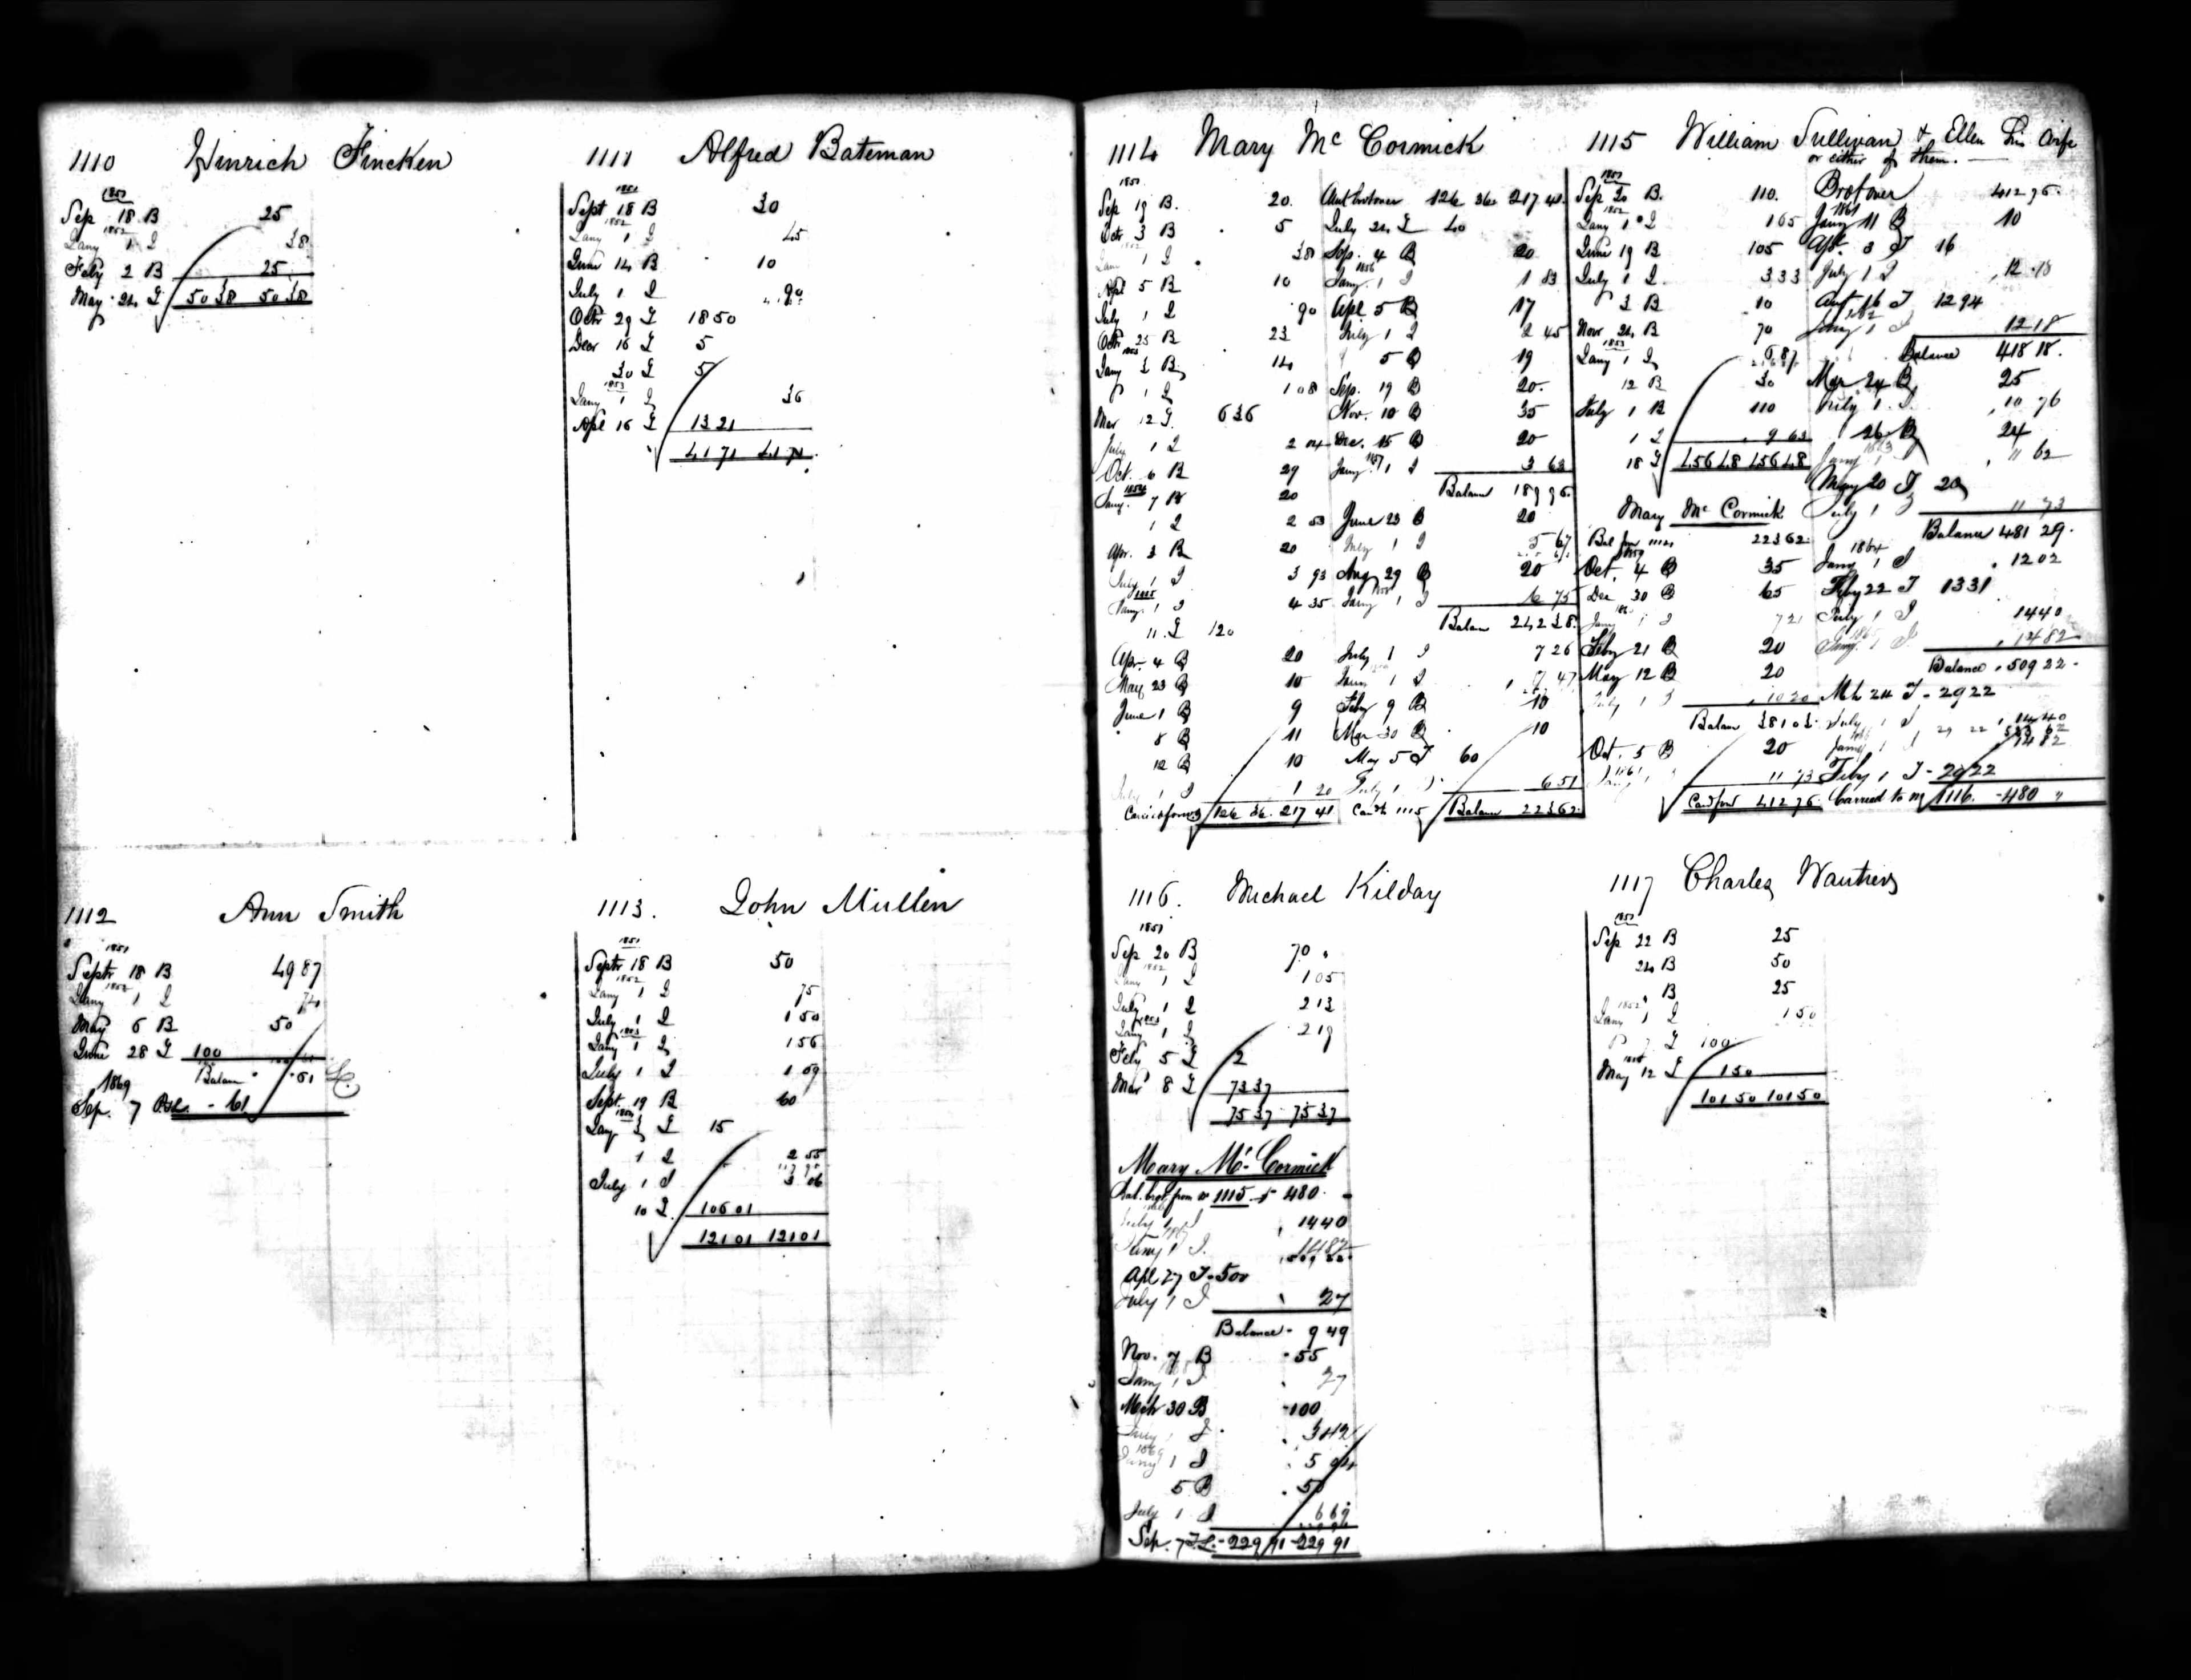 1110 Hinrich Fincken
1851
Sep 18 B 25
1852
Jany 1 I 38
Feby 2 B 25
May 24 T 50 38 50 38
1111 Alfred Bateman
1851
Sept 18 B 30
1852
Jany 1 I 45
June 14 B 10
July 1 I 90
Octr 29 T 18 50
Decr 16 T 5
30 T 5
1853
Jany 1 I 36
Apl 16 T 13 21
41 71 41 71
1112 Ann Smith
1851
Septr 18 B 49 87
1852
Jany 1 I 74
May 6 B 50
June 28 T 100
1869 Balance 61
Sep. 7 - 61
1113. John Mullen
1851
Septr 18 B 50
1852
Jany 1 I 75
July 1 I 1 50
1853
Jany 1 I 1 56
July 1 I 1 59
Sept. 19 B 60
1854
Jany 3 T 15
1 I 2 55
July 1 I 3 06
10 T 106 01
121 01 121 01
1114 Mary Mc Cormick
1851
Sep 19 B. 20.
Octr 3 B 5
1852
Jan 1 I 38
Apl 5 B 10
July 1 I 90
Octr 25 B 23
1853
Jany 3 B 14
1 I 1 08
Mar 12 T. 6 36
July 1 I 2 04
Oct. 6 B 29
1854
Jany. 7 B 20
1 I 2 53
Apr. 3 B 20
July 1 I 3 93
1855
Jany. 1 I 4 35
11. T 120
Apr. 4 B 20
May 23 B 10
June 1 B 9
8 B 11
12 B 10
July 1 I 1 20
126 36. 217 41
Amt brot over 126 36 217 41.
July 24 T 40
Sep. 4 B 20
1856
Jany. 1 I 1 83
Apl 5 B 17
July 1 I 2 45
5 B 19
Sep. 19 B 20.
Nov. 10 B 35
Dec. 15 B 20
1857
Jany. 1 I 3 63
Balance 189 96.
June 23 B 20
July 1 I 5 67
Aug 29 B 20
1858
Jany 1 I 6 75
Balan 242 38.
July 1 I 7 26
Jany 1 I 7 47
Feby 9 B 10
Mar 30 B 10
May 5 T 60
July 1 I 6 51
Card to 1115 Balance 223 62
1115 William Sullivan & Ellen his wife
or either of them.
1851
Sep 20 B. 110.
1852
Jany 1 I 1 65
June 19 B 105
July 1 I 3 33
3 B 10
Novr 24 B 70
1853
Jany 1 I 6 87
12 B 30
July 1 B 110
1 I 9 63
18 T 456 48 456 48
Mary Mc Cormick
Bal from 1114 223 62
1859
Oct. 4 B 35
Dec 30 B 65
Jany 1 I 7 21
Feby 21 B 20
May 12 B 20
July 1 I 10 20
Balan 381 03
Oct. 5 B 20
1861
11 73
Card for 412 76
Brot over 412 76.
1861
Jany 11 B 10
Apl. 3 T 16
July 1 I 12 18
Aut 16 T 12 94
1862
Jany 1 I 12 18
Balance 418 18.
Mar 24 B 25
July 1. I 10 76
26 B 24
1863
Jany 1 I 11 62
May 20 T 20
July 1 I 11 73
Balance 481 29.
1864
Jany 1 I 12 02
Feby 22 T 13 31
July 1 I 14 40
Jany. 1 I 14 82
Balance 509 22 -
Mch 24 T - 29 22
July 1 I 14 40
Jany 1 I 14 82
Feby 1 T - 29 22
Carried to No 1116. - 480 "
1116. Michael Kilday
1851
Sep 20 B 70
1852
Jany 1 I 1 05
July 1 I 2 13
1853
Jany 1 I 2 19
Feby 5 T 2
Mar 8 T 73 37
75 37 75 37
Mary Mc Cormick
Bal. brot from No 1115 - 480
July 1 I 14 40
1867
Jany 1 I. 14 82
Apl 27 T - 500
July 1 I 27
Balance - 9 49
Nov. 7 B - 55
Jany 1 I 27
Mch 30 B - 100
July 1 I 3 42
1869
Jany 1 I 5 94
5 B 50
July 1 I 6 69
Sep. 7 - 229 91 - 229 91
1117 Charles
1851
Sep 22 B 25
24 B 50
B 25
1852
Jany 1 I 1 50
7 T 100
May 12 T 1 50
101 50 101 50